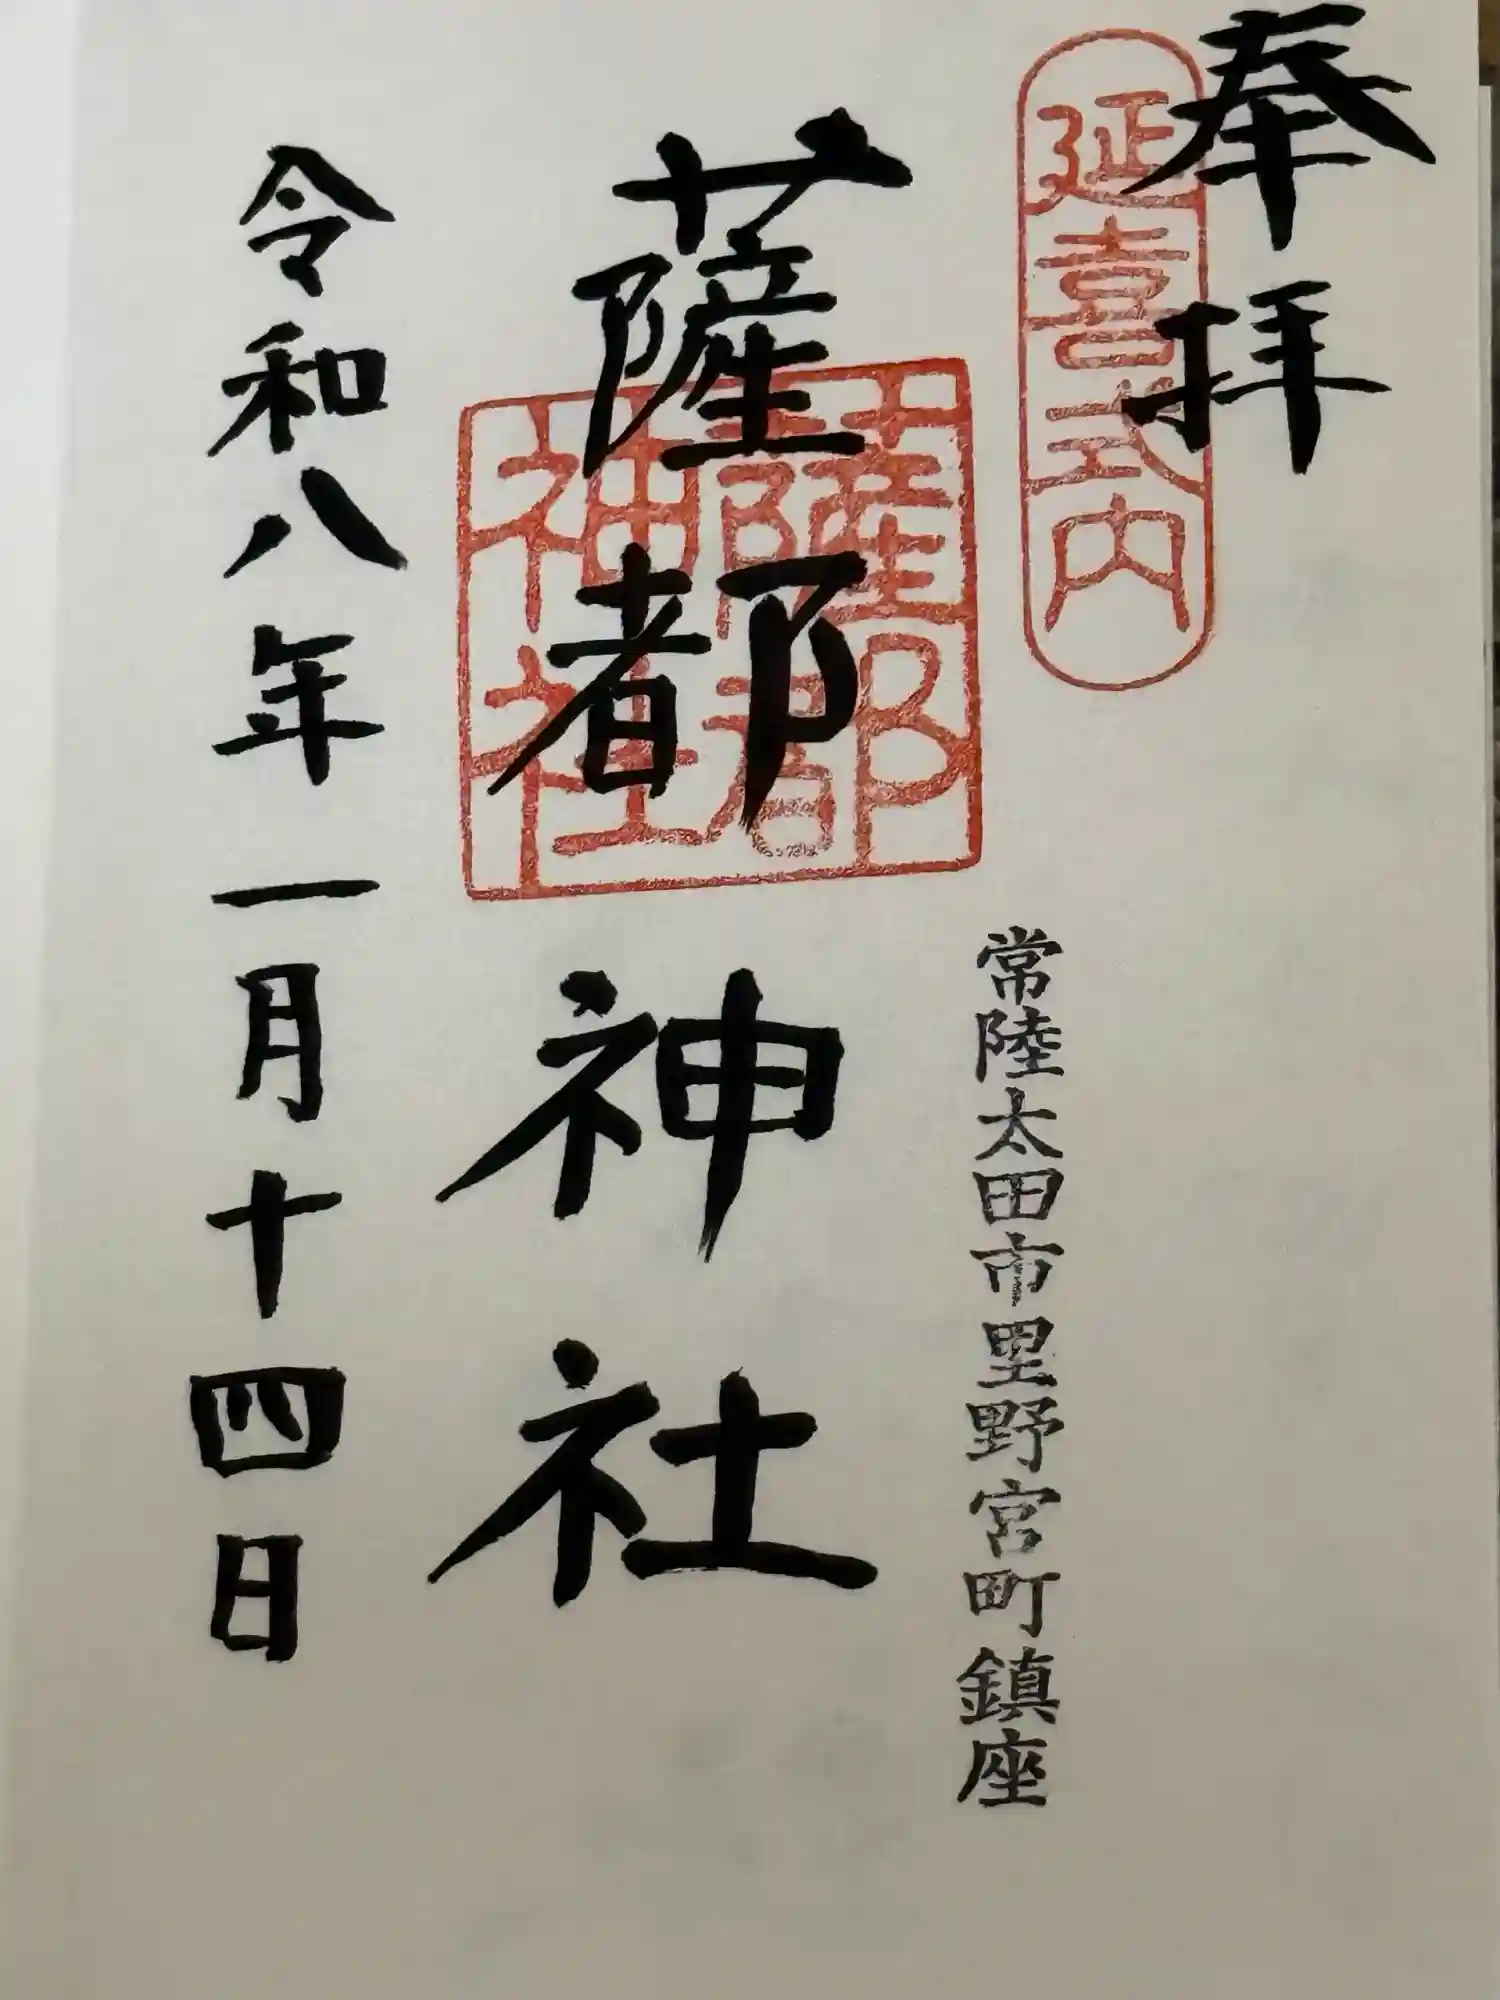 奉拝
延喜式内
常陸太田市里野宮町鎮座
薩都神社
薩都
神社
令和八年一月十四日